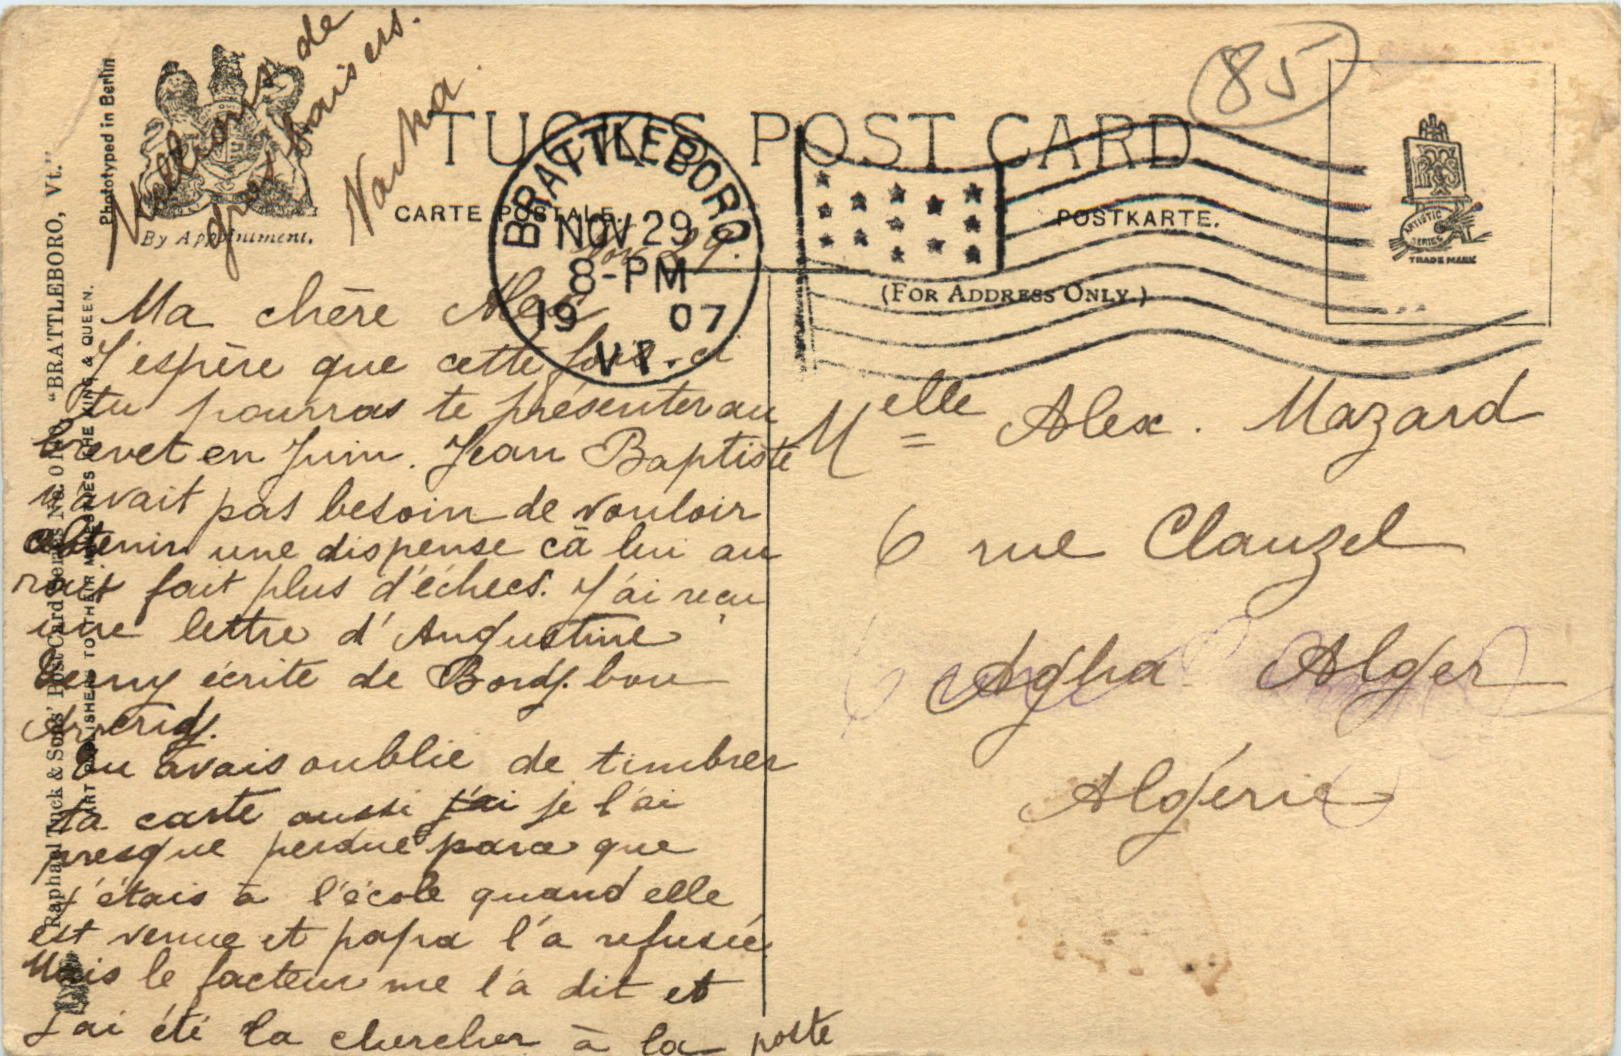 Millions de
gros baisers.
Nouka.
TUCK'S POST CARD
CARTE POSTALE.
POSTKARTE.
(FOR ADDRESS ONLY.)
By Appointment.
Phototyped in Berlin
Raphael Tuck & Sons' Post Card Series No. "BRATTLEBORO, Vt."
ART PUBLISHERS TO THEIR MAJESTIES THE KING & QUEEN.
BRATTLEBORO
NOV 29
8-PM
19 07
VT.
85
ARTISTIC
SERIES
TRADE MARK
Nov. 29.
Ma chère Alex
J'espère que cette fois-ci
tu pourras te présenter au
brevet en Juin. Jean Baptiste
n'avait pas besoin de vouloir
obtenir une dispense çà lui au
rait fait plus d'échecs. J'ai reçu
une lettre d'Augustine
écrite de Bordj. bou
Arreridj.
Tu avais oublié de timbrer
ta carte aussi j'ai je l'ai
presque perdue parce que
j'étais à l'école quand elle
est venue et papa l'a refusée
Mais le facteur me l'a dit et
j'ai été la chercher à la poste
Melle Alex. Mazard
6 rue Clauzel
Agha Alger
Algérie